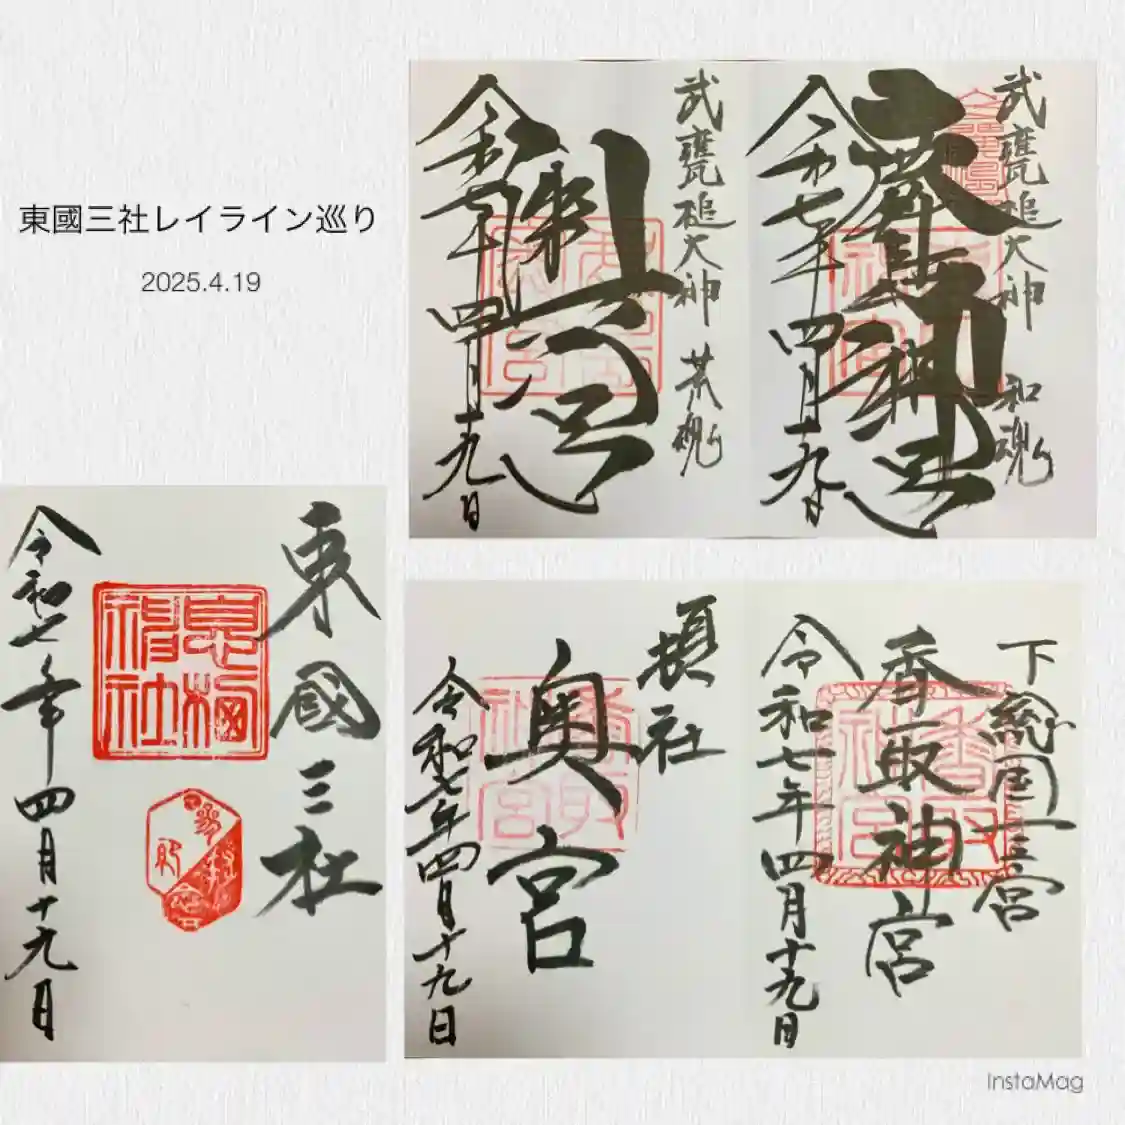 東國三社レイライン巡り
2025.4.19
武甕槌大神 和魂
令和七年四月十九日
武甕槌大神 荒魂
奥宮
令和七年四月十九日
東國三社
息栖神社
令和七年四月十九日
下総国一之宮
香取神宮
令和七年四月十九日
摂社
奥宮
令和七年四月十九日
InstaMag